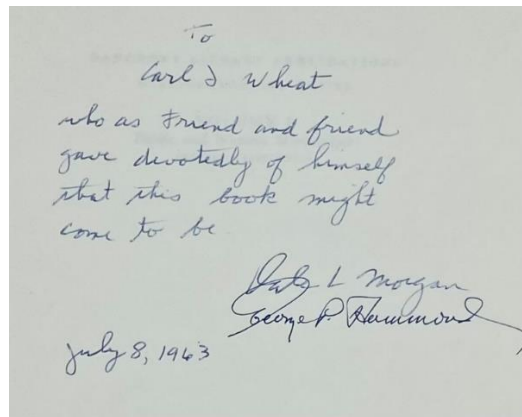 To
Carl I Wheat
who as Friend and friend
gave devotedly of himself
that this book might
come to be
Dale L Morgan
George P. Hammond
July 8, 1963